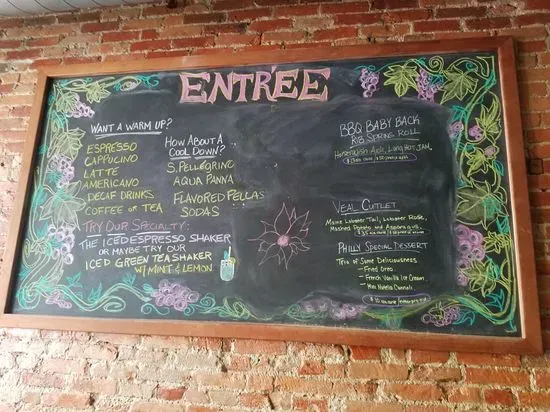 ENTRÉE
WANT A WARM UP?
ESPRESSO
CAPPUCINO
LATTE
AMERICANO
DECAF DRINKS
COFFEE OR TEA
TRY OUR SPECIALTY:
THE ICED ESPRESSO SHAKER
OR MAYBE TRY OUR
ICED GREEN TEA SHAKER
W/ MINT & LEMON
HOW ABOUT A
COOL DOWN?
S. PELLEGRINO
AQUA PANNA
FLAVORED PELLAS
SODAS
BBQ BABY BACK
RIB SPRING ROLL
Horseradish Aioli, Long Hot JAM
VEAL CUTLET
Maine Lobster Tail, Lobster
Mashed Potato and Asparagus
PHILLY SPECIAL DESSERT
Trio of Some Deliciousness
- Fried Oreo
- French Vanilla Ice Cream
- Mini Nutella Cannoli